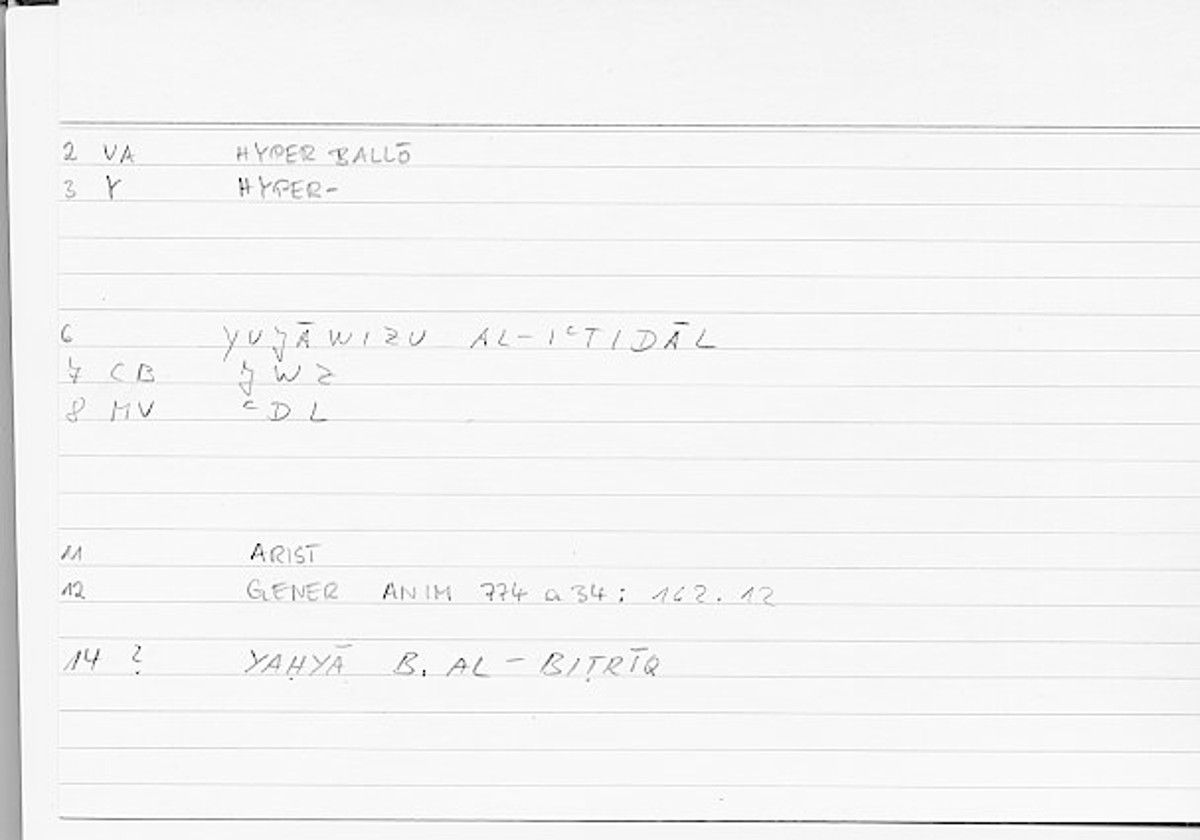 2 VA HYPER BALLŌ
3 Y HYPER-
6 YUǦĀWIZU AL-IʿTIDĀL
7 CB ǦWZ
8 MV ʿDL
11 ARIST
12 GENER ANIM 774 a 34: 162.12
14 ? YAḤYĀ B. AL-BIṬRĪQ